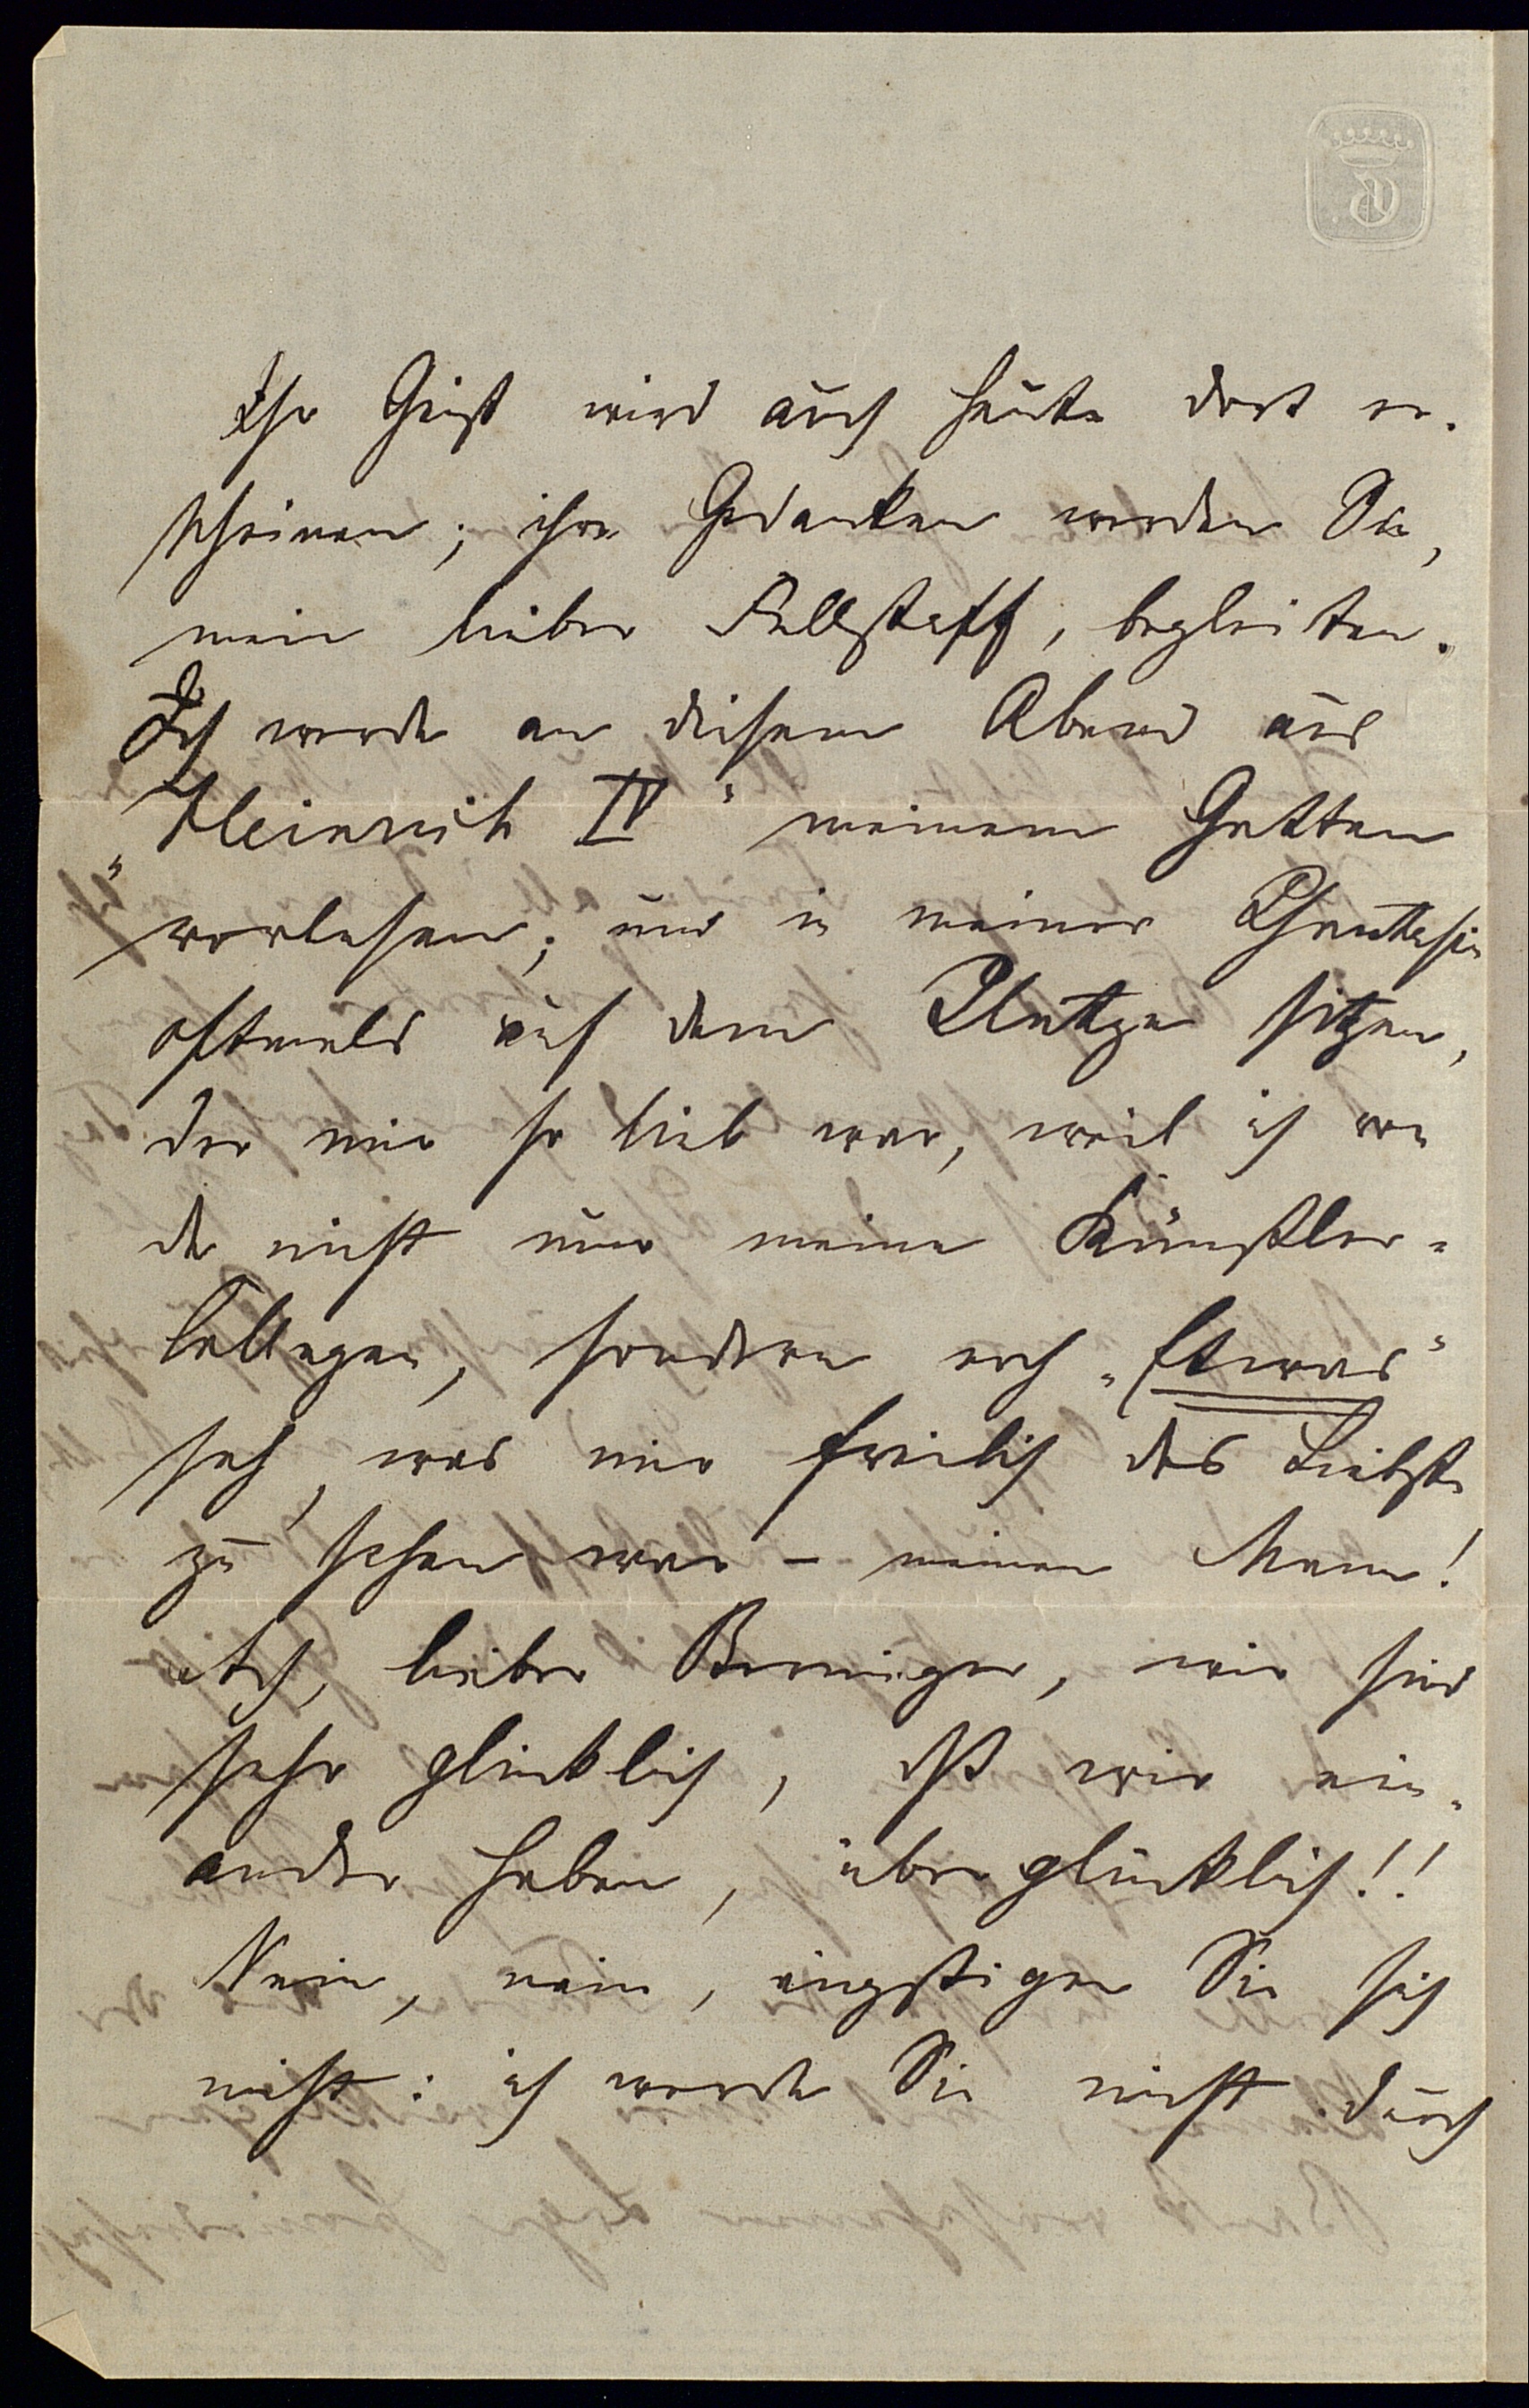 Ihr Geist wird auch heute dort er-
scheinen; ihre Gedanken werden Sie,
mein lieber Fallstaff, begleiten.
Ich werde an diesem Abend aus
„Heinrich IV" meinem Gatten
vorlesen; und in meiner Phantasie
oftmals auf dem Platze sitzen,
der mir so lieb war, weil ich von
da nicht nur meine Künstler-
Collegen, sondern auch „Etwas"
sah, was mir freilich das Liebste
zu sehen war – meinen Mann!
Ach, lieber wir sind
sehr glücklich, daß wir ein-
ander haben, überglücklich!!
Nein, nein, ängstigen Sie sich
nicht: ich werde Sie nicht durch